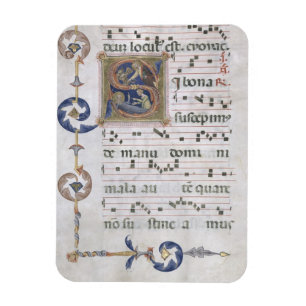 deus locut' est. evovae.
S i bona
suscepim'
de manu domi ni
mala au tē quare
nō su stine a mus